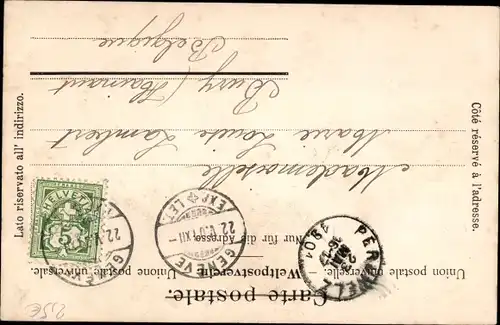 Carte postale.
Union postale universelle. — Weltpostverein. — Unione postale universale.
Nur für die Adresse.
Côté réservé à l'adresse.
Lato riservato all' indirizzo.
Mademoiselle
Marie Louise Lambert
Bury (Hainaut
Belgique
HELVETIA
5
GENÈVE
EXP. LET.
22
XII
1904
23
2,5€